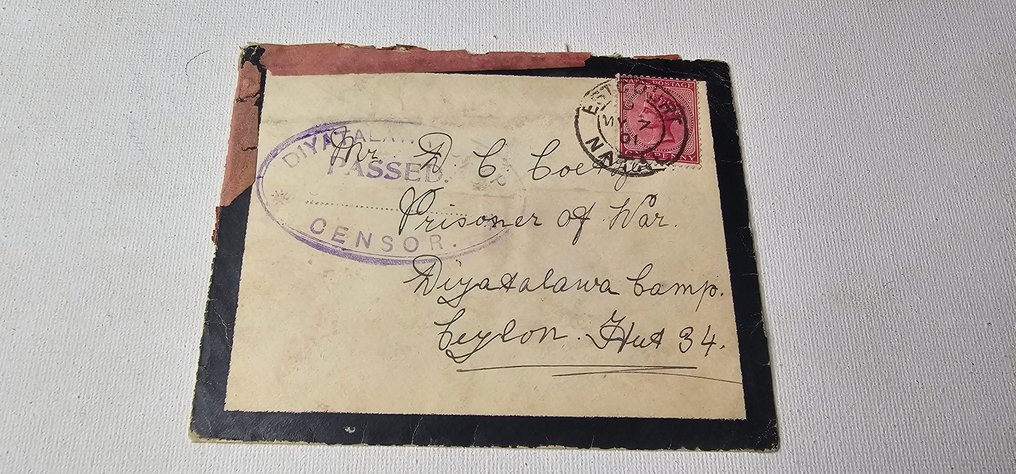 NATAL POSTAGE
ESTCOURT
MY 7
01
NATAL
ONE PENNY
DIYATALAWA
PASSED.
CENSOR.
Mr. D. C.
Prisoner of War.
Diyatalawa Camp.
Ceylon. Hut 34.